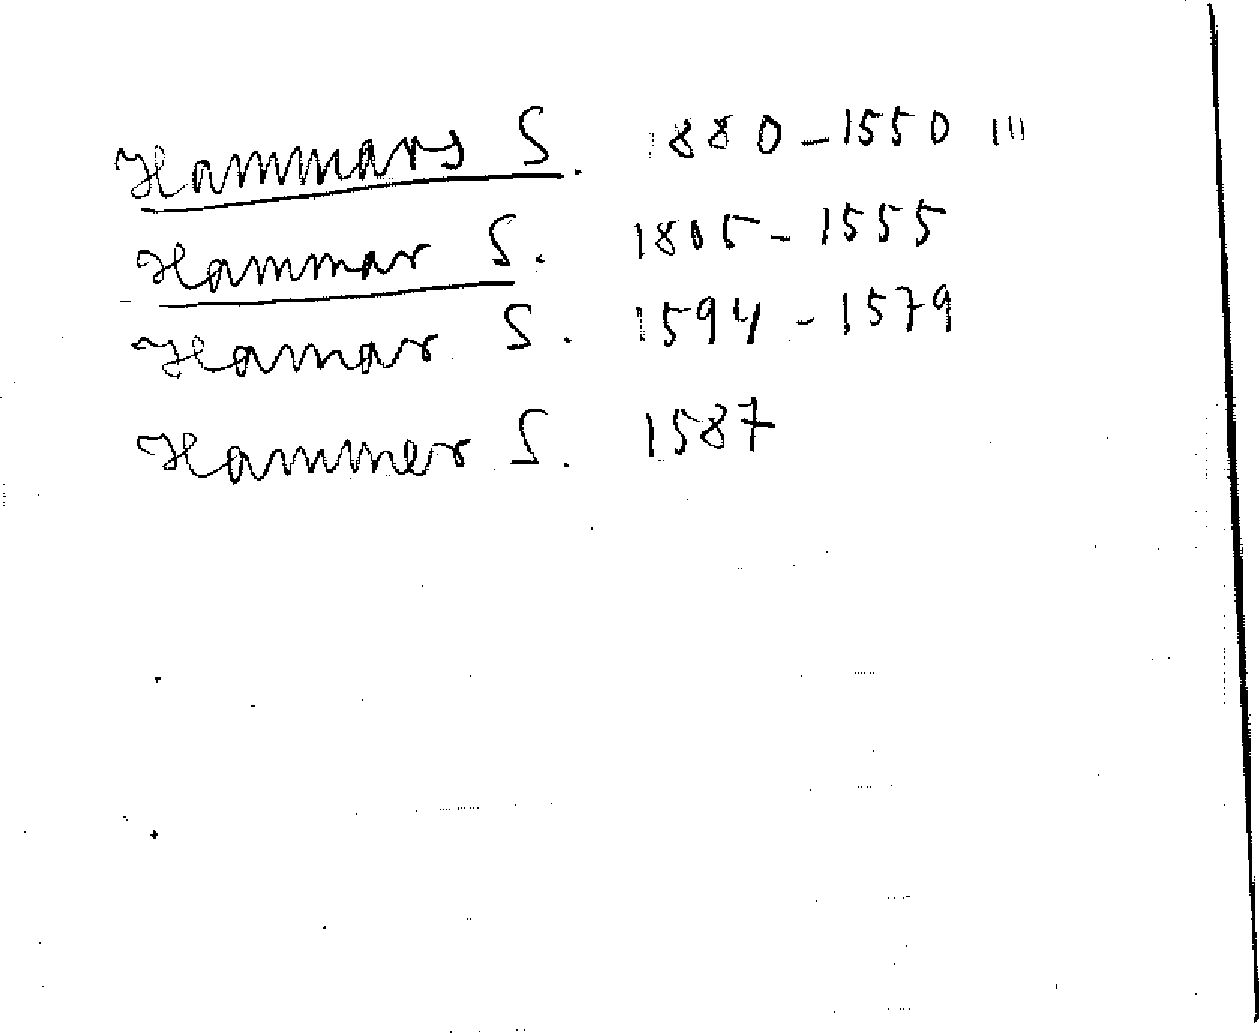 Hammars S. 1880-1550 III
Hammar S. 1805-1555
Hamar S. 1594-1579
Hammer S. 1587